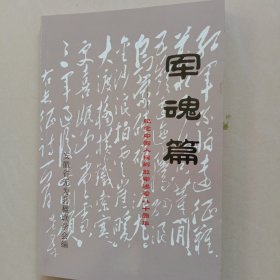 军魂篇
纪念中国人民解放军建军八十周年
红军不怕远征
难万水千山
只等闲五岭
逶迤腾细浪
乌蒙磅礴走泥丸
金沙浪拍云崖暖
大渡桥横铁索寒
更喜岷山千里雪
三军过后尽开颜